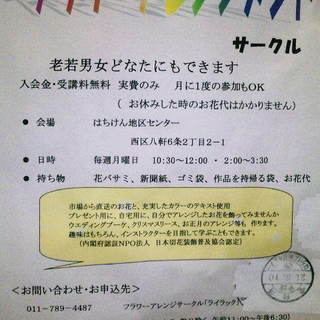 サークル
老若男女どなたにもできます
入会金・受講料無料 実費のみ 月に1度の参加もOK
( お休みした時のお花代はかかりません)
● 会場 はちけん地区センター
西区八軒6条2丁目2-1
● 日時 毎週月曜日 10:30~12:00 ・ 2:00~3:30
● 持ち物 花バサミ、新聞紙、ゴミ袋、作品を持帰る袋、お花代
市場から直送のお花と、充実したカラーのテキスト使用
プレゼント用に、自宅用に、自分でアレンジしたお花を飾ってみませんか
ウエディングブーケ、クリスマスリース、お正月のアレンジ等も 作ります。
趣味はもちろん、インストラクターを目指して学ぶこともできます。
(内閣府認証NPO法人 日本切花装飾普及協会認定)
<お問い合わせ・お申込先>
011-789-4487 フラワーアレンジサークル「ライラック」